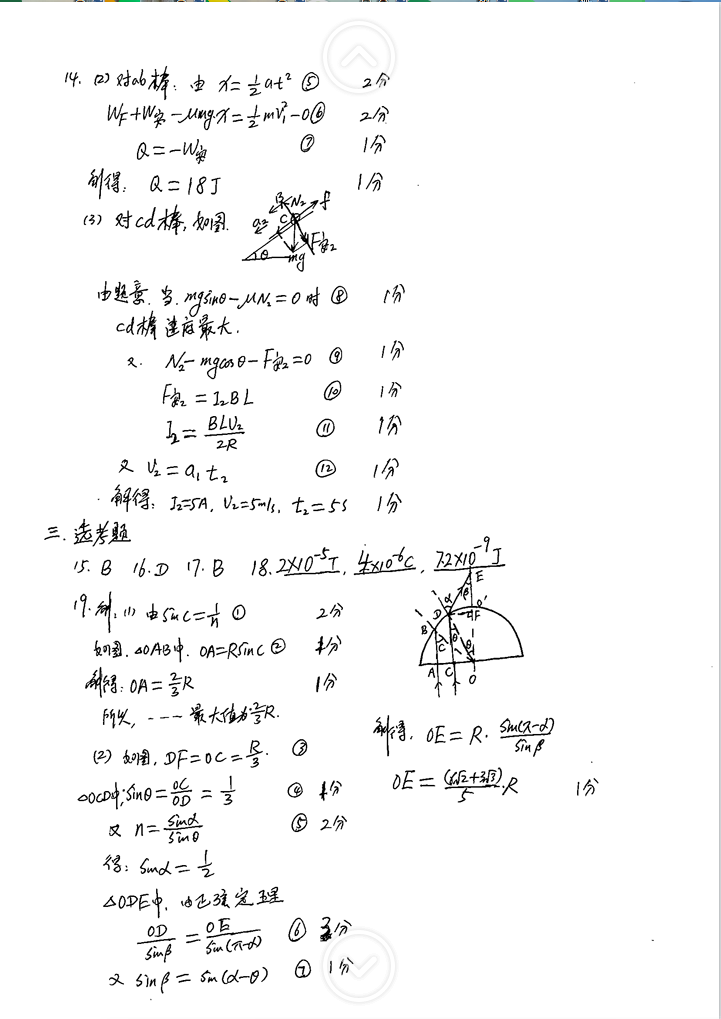 14. (2) 对ab棒: 由 x=½at² ⑤ 2分
W_F+W安-μmg·x=½mv₁²-0 ⑥ 2分
Q=-W安 ⑦ 1分
解得: Q=18J 1分
(3) 对cd棒, 如图.
N₂ f
C
F安₂
θ mg
由题意, 当 mgsinθ-μN₂=0 时 ⑧ 1分
cd棒速度最大.
又. N₂-mgcosθ-F安₂=0 ⑨ 1分
F安₂=I₂BL ⑩ 1分
I₂=BLU₂/2R ⑪ 1分
又 V₂=a₁t₂ ⑫ 1分
解得: I₂=5A, V₂=5m/s, t₂=5s 1分
三. 选考题
15. B 16. D 17. B 18. 2×10⁻⁵T, 4×10⁻⁶C, 7.2×10⁻⁹J
19. 解, (1) 由 sinC=1/n ① 2分
如图. △OAB中. OA=RsinC ② 1分
解得: OA=⅔R 1分
所以, --- 最大值为⅔R.
(2) 如图, DF=OC=R/3 ③
△OCD中, sinθ=OC/OD=1/3 ④ 1分
又 n=sinα/sinθ ⑤ 2分
得: sinα=1/2
△ODE中, 由正弦定理
OD/sinβ=OE/sin(π-α) ⑥
又 sinβ=sin(α-θ) ⑦ 1分
E
β
α
D O′
F
B
C θ θ
A C O
解得, OE=R·sin(π-α)/sinβ
OE=(6√2+3√3)/5·R 1分